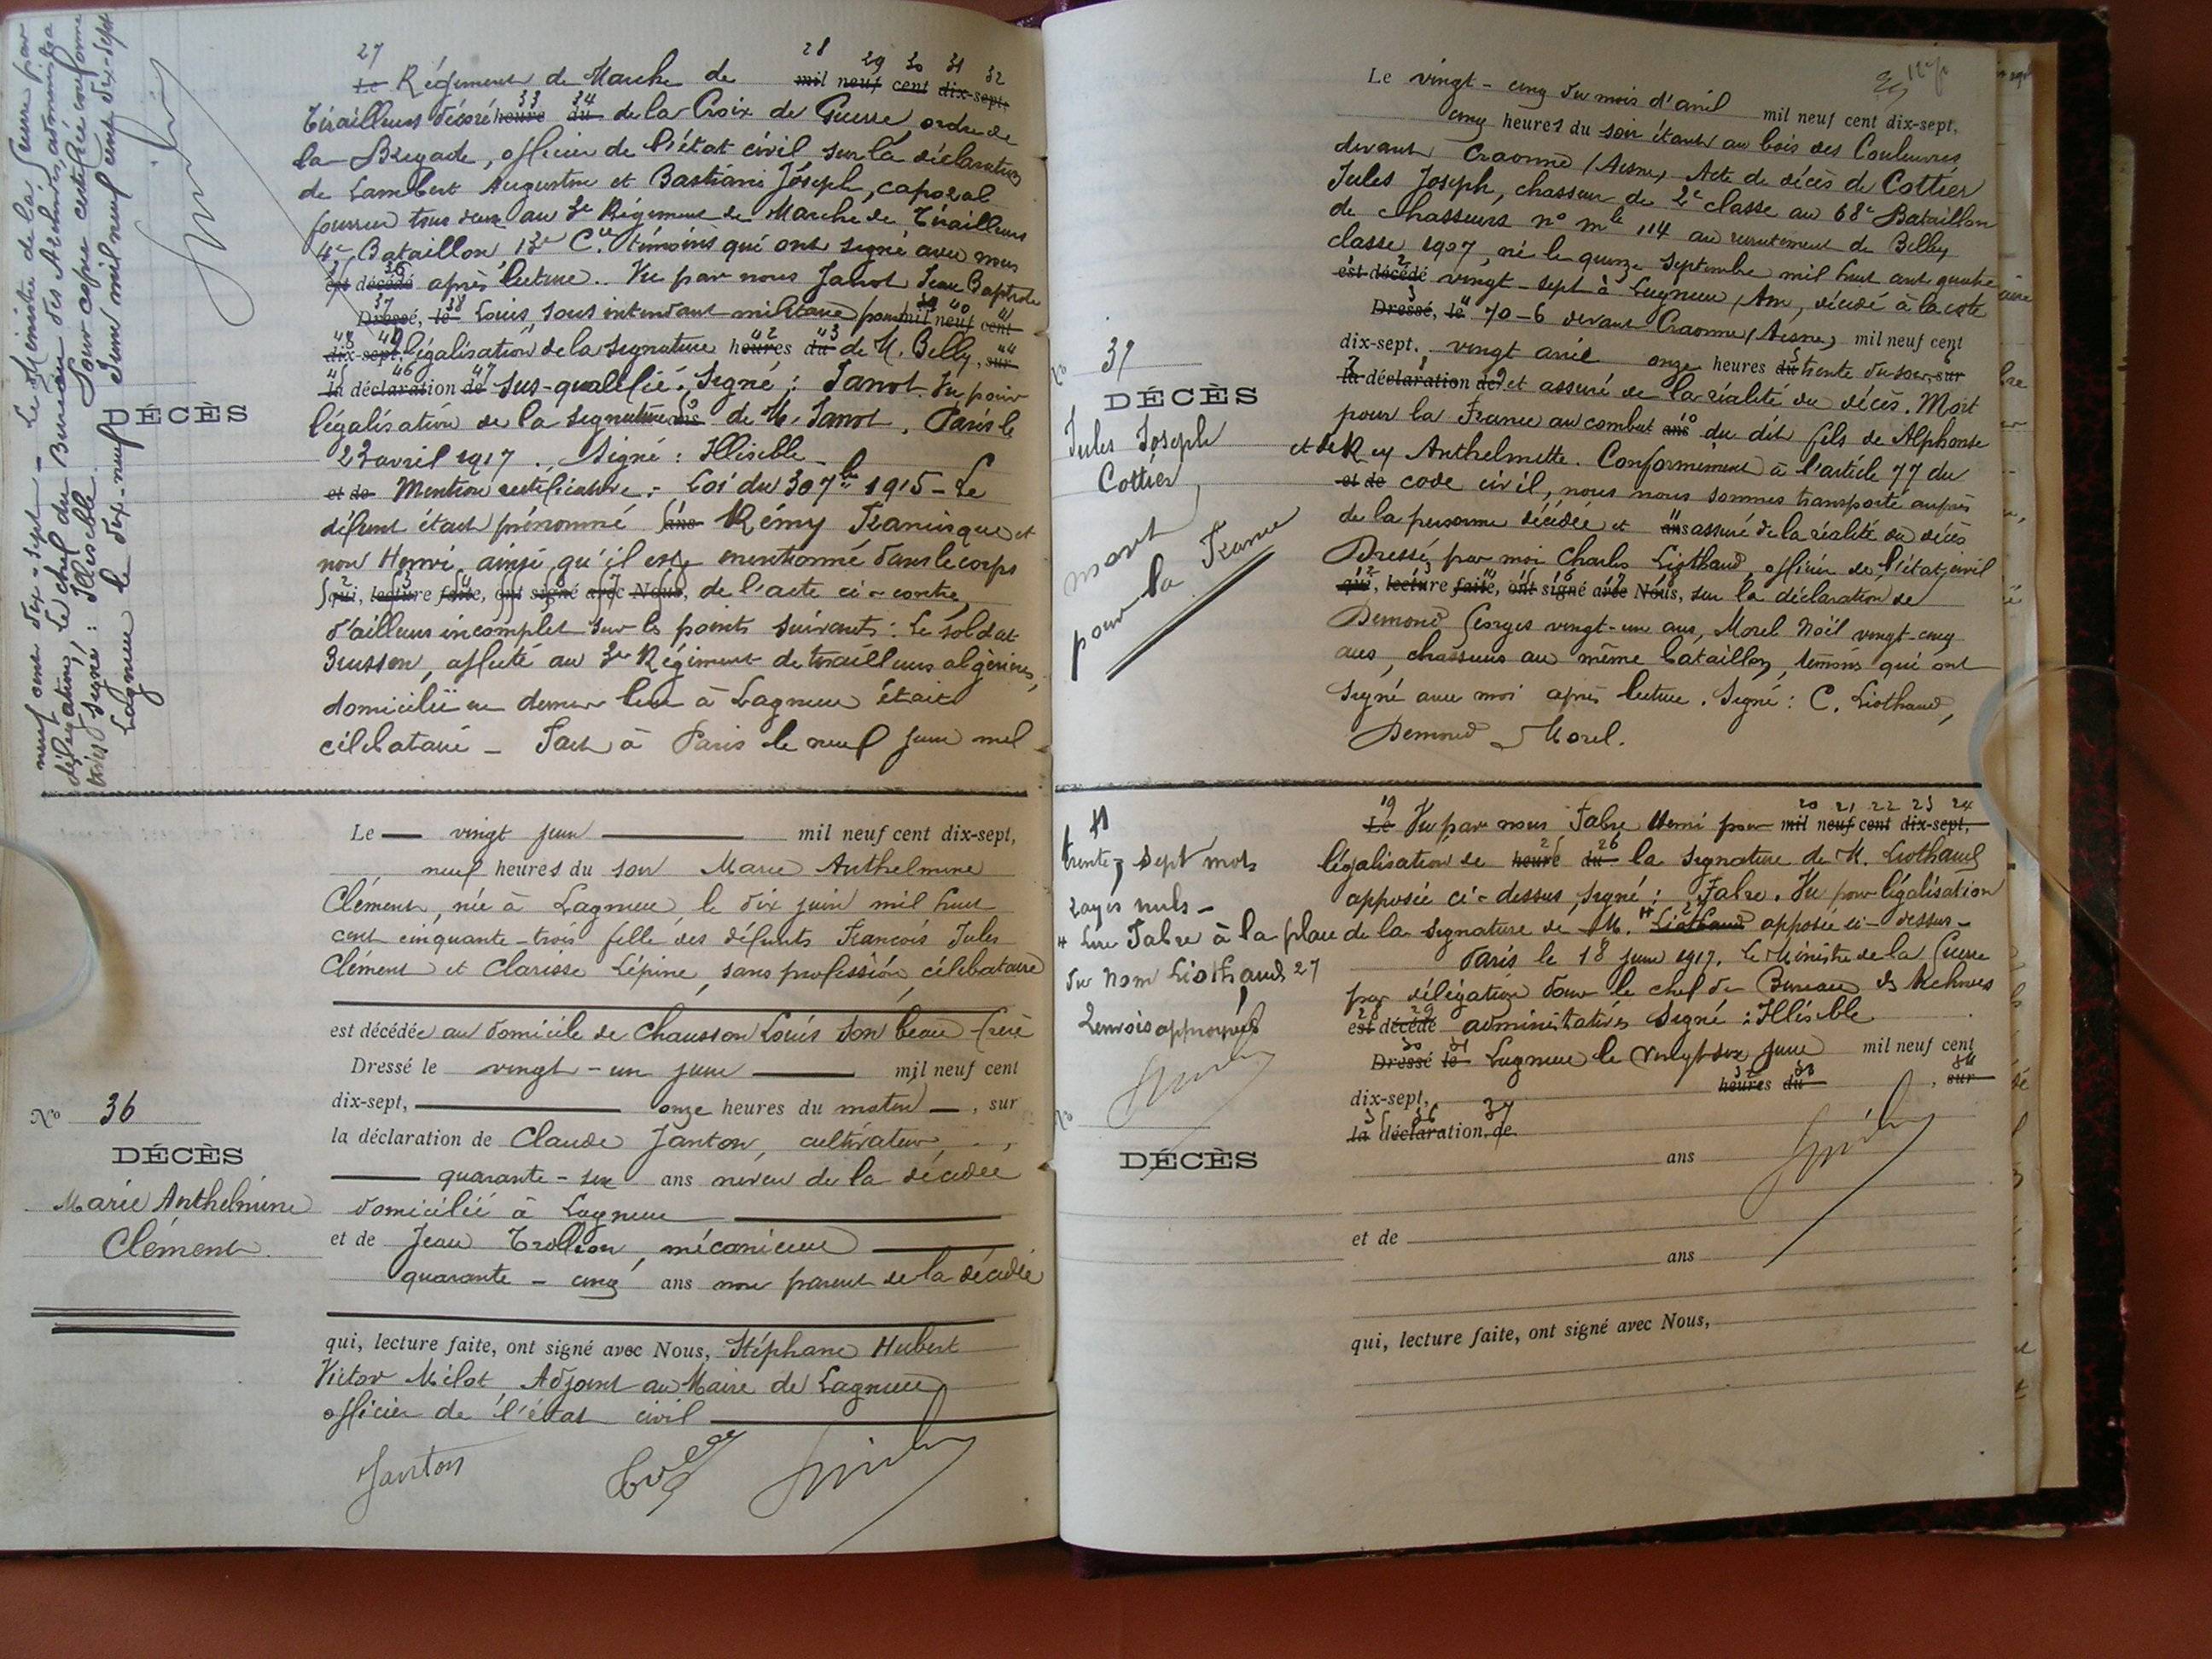 neuf cent dix-sept - Le Ministre de la Guerre par
délégation, Le chef du Bureau des Archives, administra
tives signé : Illisible. Pour copie certifiée conforme
Lagnieu le dix-neuf Juin mil neuf cent dix-sept
DÉCÈS
27 28 29 30 31 32
Le Régiment de Marche de mil neuf cent dix-sept,
33 34
Tirailleurs décoré heure du de la Croix de Guerre, ordre de
la Brigade, officier de l'état civil sur la déclaration
de Lambert Augustin et Bastiani Joseph, caporal
fourrier tous deux au 3e Régiment de Marche de Tirailleurs
4e Bataillon 13e Cie témoins qui ont signé avec nous
35 36
est décédé après lecture.. Vu par nous Janot Jean Baptiste
37 38 39 40 41
Dressé, le Louis, sous intendant militaire pour mil neuf cent
48 49 42 43 44
dix-sept, légalisation de la signature heures du de M. Belly, sur
45 46 47
la déclaration de sus-qualifié. Signé : Janot. Vu pour
légalisation de la signature ans de M. Janot. Paris le
23 avril 1917. Signé : Illisible -
et de Mention rectificative :- Loi du 30 7bre 1915 - Le
défunt était prénommé ans Rémy Francisque et
non Henri ainsi qu'il est mentionné dans le corps
qui, lecture faite, ont signé avec Nous, de l'acte ci-contre,
d'ailleurs incomplet sur les points suivants : Le soldat
Brusson, affecté au 3e Régiment de tirailleurs algériens,
domicilié en dernier lieu à Lagnieu était
célibataire - Fait à Paris le neuf juin mil
No 36
DÉCÈS
Marie Anthelmine
Clément
Le vingt juin mil neuf cent dix-sept,
neuf heures du soir Marie Anthelmine
Clément, née à Lagnieu, le dix juin mil huit
cent cinquante-trois fille des défunts François Jules
Clément et Clarisse Lépine, sans profession, célibataire
est décédée au domicile de Chausson Louis son beau-frère
Dressé le vingt-un juin mil neuf cent
dix-sept, onze heures du matin, sur
la déclaration de Claude Janton, cultivateur,
quarante-six ans neveu de la décédée
domicilié à Lagnieu
et de Jean Trollion, mécanicien
quarante-cinq ans non parent de la décédée
qui, lecture faite, ont signé avec Nous, Stéphane Hubert
Victor Milot Adjoint au Maire de Lagnieu
officier de l'état civil
Janton
No 37
DÉCÈS
Jules Joseph
Cottier
mort
pour la France
Le vingt-cinq du mois d'avril mil neuf cent dix-sept,
cinq heures du soir étant au bois des Couleuvres
devant Craonne (Aisne), Acte de décès de Cottier
Jules Joseph, chasseur de 2e classe au 68e Bataillon
de chasseurs no mle 114 au recrutement de Belley
classe 1907, né le quinze septembre mil huit cent quatre
est décédé vingt-sept à Lagnieu, Ain, décédé à la cote
Dressé, le 70-6 devant Craonne (Aisne) mil neuf cent
dix-sept, vingt avril onze heures du trente du soir, sur
la déclaration de et assuré de la réalité du décès. Mort
pour la France au combat ans du dit fils de Alphonse
et de Rey Anthelmette. Conformément à l'article 77 du
et de code civil, nous nous sommes transporté auprès
de la personne décédée et ans assuré de la réalité du décès
Dressé par moi Charles Liothaud, officier de l'état civil
qui, lecture faite, ont signé avec Nous, sur la déclaration de
Demond Georges vingt-un ans, Morel Noël vingt-cinq
ans, chasseurs au même bataillon, témoins qui ont
signé avec moi après lecture. Signé : C. Liothaud,
Demond - Morel.
trente-sept mots
rayés nuls -
# Lire Fabre à la place
du nom Liothaud 27
2 envois approuvés
No
DÉCÈS
19 20 21 22 23 24
Le Vu par nous Fabre Henri pour mil neuf cent dix-sept,
25 26
légalisation de heure du la signature de M. Liothaud
apposée ci-dessus, signé : Fabre. Vu pour légalisation
de la signature de M. # Liothaud apposée ci-dessus -
Paris le 18 juin 1917. Le Ministre de la Guerre
par délégation pour le chef du Bureau des Archives
28 29
est décédé administratives Signé : Illisible
30 31
Dressé le Lagnieu le vingt-six juin mil neuf cent
32 33 34
dix-sept, heures du, sur
35 36 37
la déclaration de
ans
et de
ans
qui, lecture faite, ont signé avec Nous,